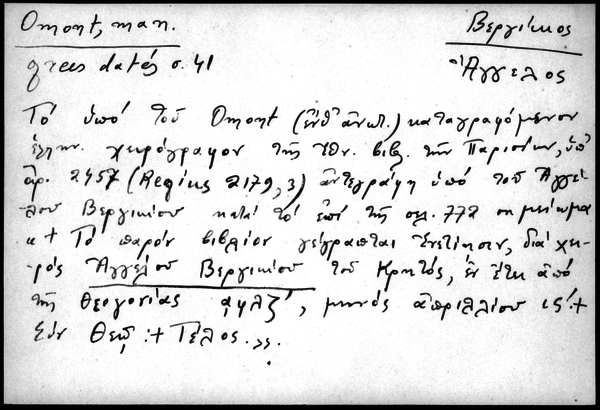 Omont, man.
Βεργίκιος
grecs datés σ. 41
Ἄγγελος
Τό ὑπό τοῦ Omont (ἔνθ' ἄνωτ.) καταγραφόμενον
ἑλλην. χειρόγραφον τῆς Ἐθν. βιβλ. τῶν Παρισίων, ὑπ'
ἀρ. 2457 (Regius 2179,3) ἀντεγράφη ὑπό τοῦ Ἀγγέ-
λου Βεργικίου κατά τό ἐπί τῆς σελ. 772 σημείωμα
"+ Τό παρόν βιβλίον γέγραπται Ἐνετίησιν, διά χει-
ρός Ἀγγέλου Βεργικίου τοῦ Κρητός, ἐν ἔτει ἀπό
τῆς θεογονίας ͵αφλζ', μηνός ἀπριλλίου ιϛ' :+
Σύν Θεῷ :+ Τέλος.